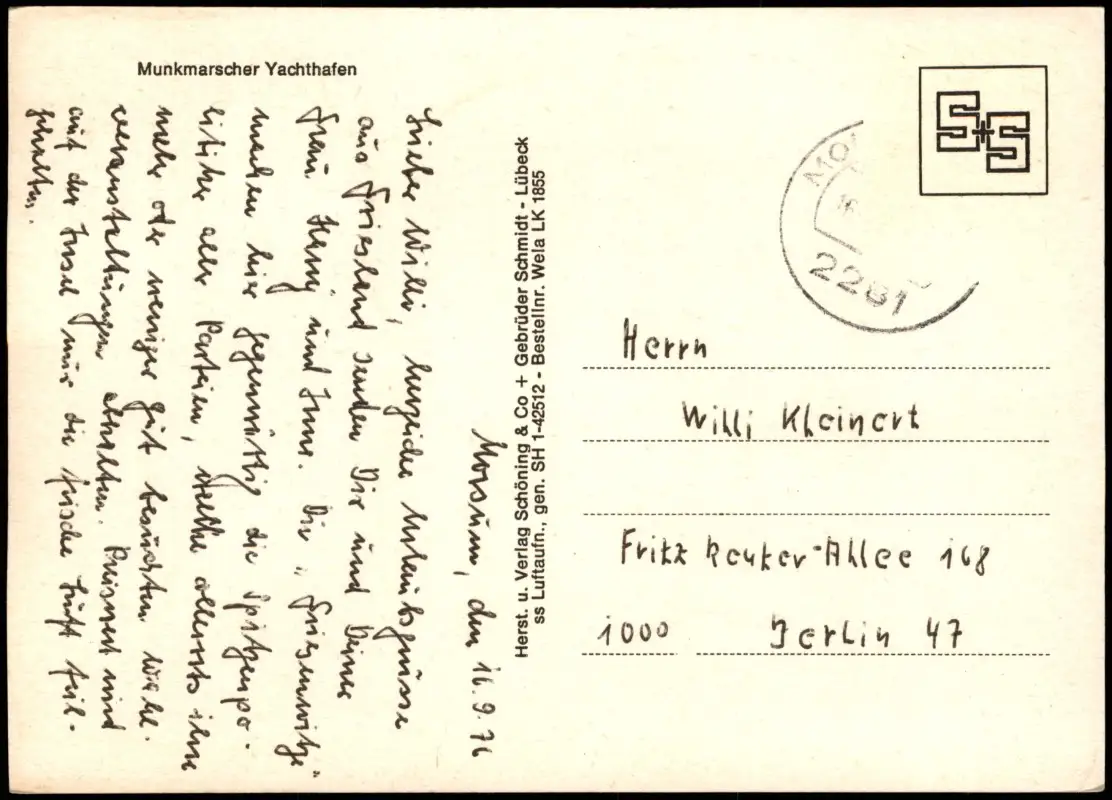 Munkmarscher Yachthafen
Morsum, den 16.9.76
Lieber Willi, herzliche Urlaubsgrüsse
aus Friesland senden Dir und Deiner
Frau Henny und Jens. Die „Friesenwitze"
machen hier gegenwärtig die Spitzenpo-
litiker aller Parteien, welche allerorts ihre
mehr oder weniger gut besuchten Wahl-
veranstaltungen abhalten. Preiswert wird
auf der Insel nur die frische Luft feil-
gehalten.
Herst. u. Verlag Schöning & Co + Gebrüder Schmidt - Lübeck
ss Luftaufn., gen. SH 1-42512 - Bestellnr. Wela LK 1855
S+S
MO
16
2281
Herrn
Willi Kleinert
Fritz Reuter-Allee 168
1000 Berlin 47